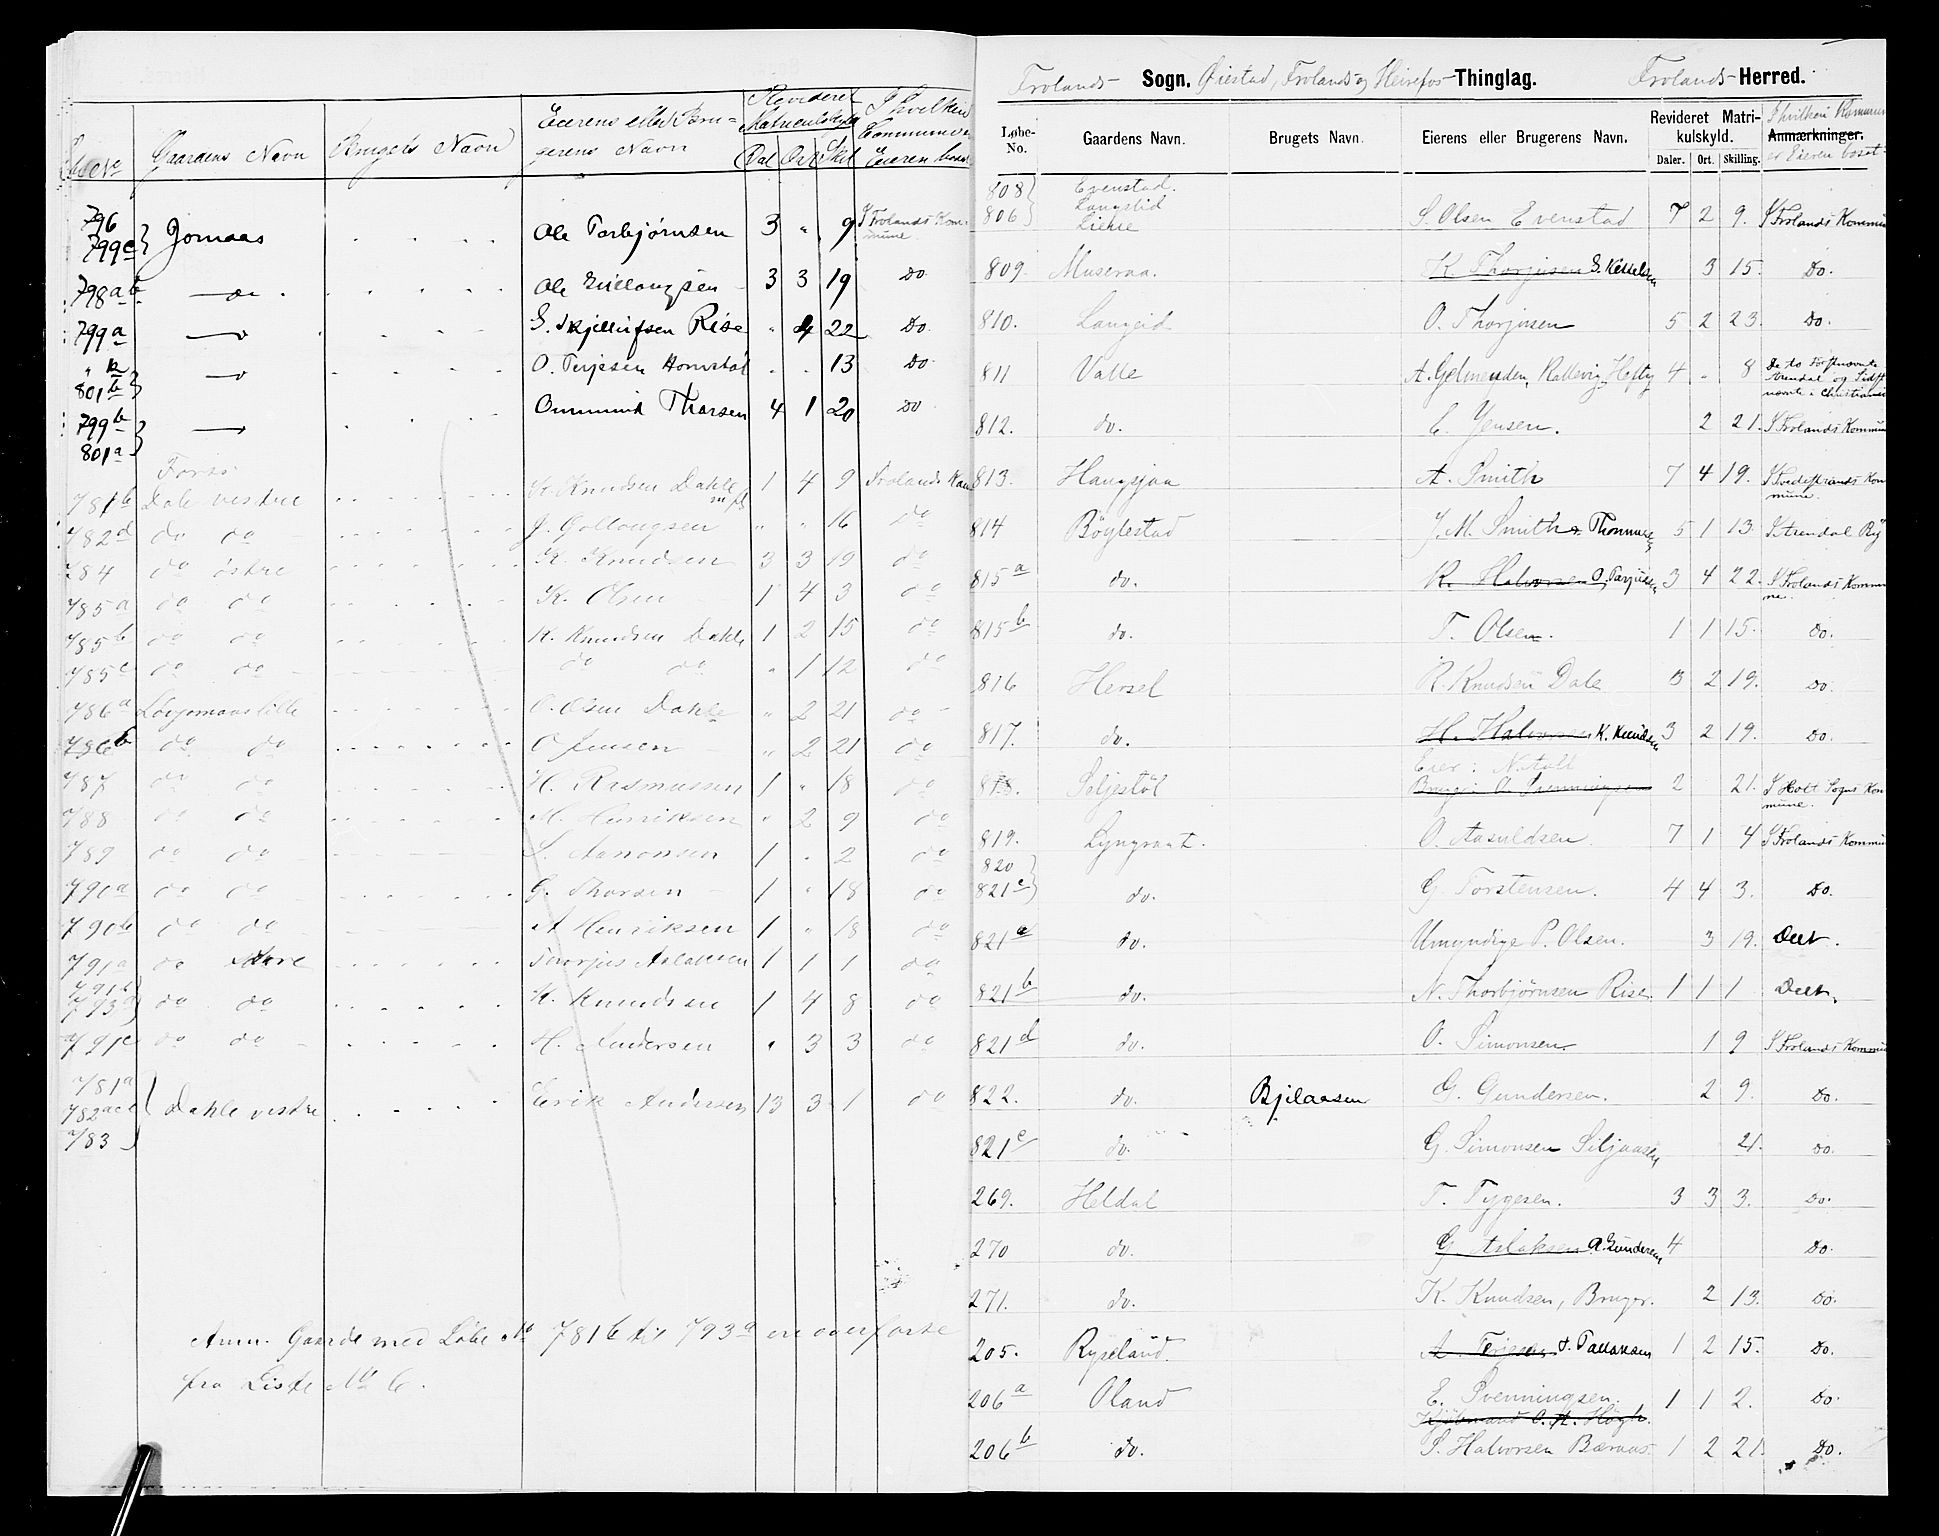 Løbe No Gaardens Navn Brugets Navn Eierens eller Bru- gerens Navn Revideret Matriculskyld Dal Ort Skil I hvilken Commune er Eieren bosat
796 799c } Jomaas Ole Torbjørnsen 3 " 9 I Frolands Kom- mune
798a b — do Ole Gullougsen 3 3 19 Do
799a — do S. Skjellufsen Rise " 4 22 Do.
" 801b } — do O. Terjesen 13 Do
799b 801a } — Ommund Thorsen 4 1 20 Do
Forss
781b Dale vestre Kr. Knudsen Dahle m fl 1 4 9 Frolands Kom
782d do do J. Gollougsen " " 16 do
784 do østre K. Knudsen 3 3 19 do
785a do do K. Olsen 1 4 3 do
785b do do K. Knudsen Dahle 1 2 15 do
785c do do do do " 1 12 do
786a Lovjomaas lille O. Olsen Dahle " 2 21 do
786b do do O Jensen " 2 21 do
787 do do H. Rasmussen 1 " 18 do
788 do do M. Henriksen " 2 9 do
789 do do S. Aanonsen 1 " 2 do
790a do do G. Thorsen 1 " 18 do
790b do do A Henriksen 1 " 18 do
791a do Store Thorjus Aslaksen 1 1 1 do
791b 793a } do do K. Knudsen 1 4 8 do
791c do do H. Andersen " 3 3 do
781a 782ac 783 } Dahle vestre Erik Andersen 13 3 1 do
Anm. Gaarde med Løbe No 781b til 793a ere overførte
fra Liste No 6.
Frolands Sogn. Øiestad, Frolands og Heirefos Thinglag. Frolands Herred.
Løbe- No. Gaardens Navn. Brugets Navn. Eierens eller Brugerens Navn. Revideret Matri- kulskyld. Daler. Ort. Skilling. I hvilken Kommune Anmærkninger. er Eieren bosat
808 806 } Evenstad. Langslid Liene S. Olsen Evenstad 7 2 9. I Frolands Kommun
809. Museraa. K Thorjusen S. Kittelsen 3 15. Do.
810. Langeid O. Thorjusen 5 2 23. Do.
811 Valle A. Gjelmenden, Kallevig, Hefty 4 " 8 De to Førstnævnte Arendal og Sidst nævnte i Christiania
812. do. C. Jensen. 2 21. I Frolands Kommun
813. Haugsjaa A. Smith 7 4 19. I Tvedestrands Kom mune.
814 Bøylestad J. M. Smith Thommesen 5 1 13 I Arendal By
815a do. K. Halvorsen O. Terjusen 3 4 22. I Frolands Kommu ne.
815b do. T. Olsen. 1 1 15. Do.
816 Hersel R. Knudsen Dale 3 2 19. Do.
817. do. H. Halvorsen K. Knudsen 3 2 19. Do.
818. Seljestøl Eier: N. Vall Bruger O. Svenningsen 2 21. I Holt Sogns Kom mune.
819. Lyngraat. O. Aasuldsen 7 1 4 I Frolands Kommun
820 821c } do. G. Torstensen. 4 4 3. Do.
821a do. Umyndige P. Olsen. 3 19. Deet.
821b do. N. Thorbjørnsen Rise. 1 1 1 Deet.
821d do. O. Simonsen. 1 9 I Frolands Kommun
822. do. Bjelaasen G. Gundersen. 2 9. Do.
821e do. G. Simonsen Siljaasen 21. Do.
269. Heldal T. Tygesen. 3 3 3. Do.
270 do. G. Aslaksen A. Gundersen 4 Do.
271. do. K. Knudsen, Bruger. 2 13. Do.
205. Ryseland. A. Terjesen T. Tallaksen 1 2 15. Do.
206a Oland E. Svenningsen. 1 1 2. Do.
Kjøbmand O. A. Høgh.
206b do. S. Halvorsen Bæraas. 1 2 21. Do.